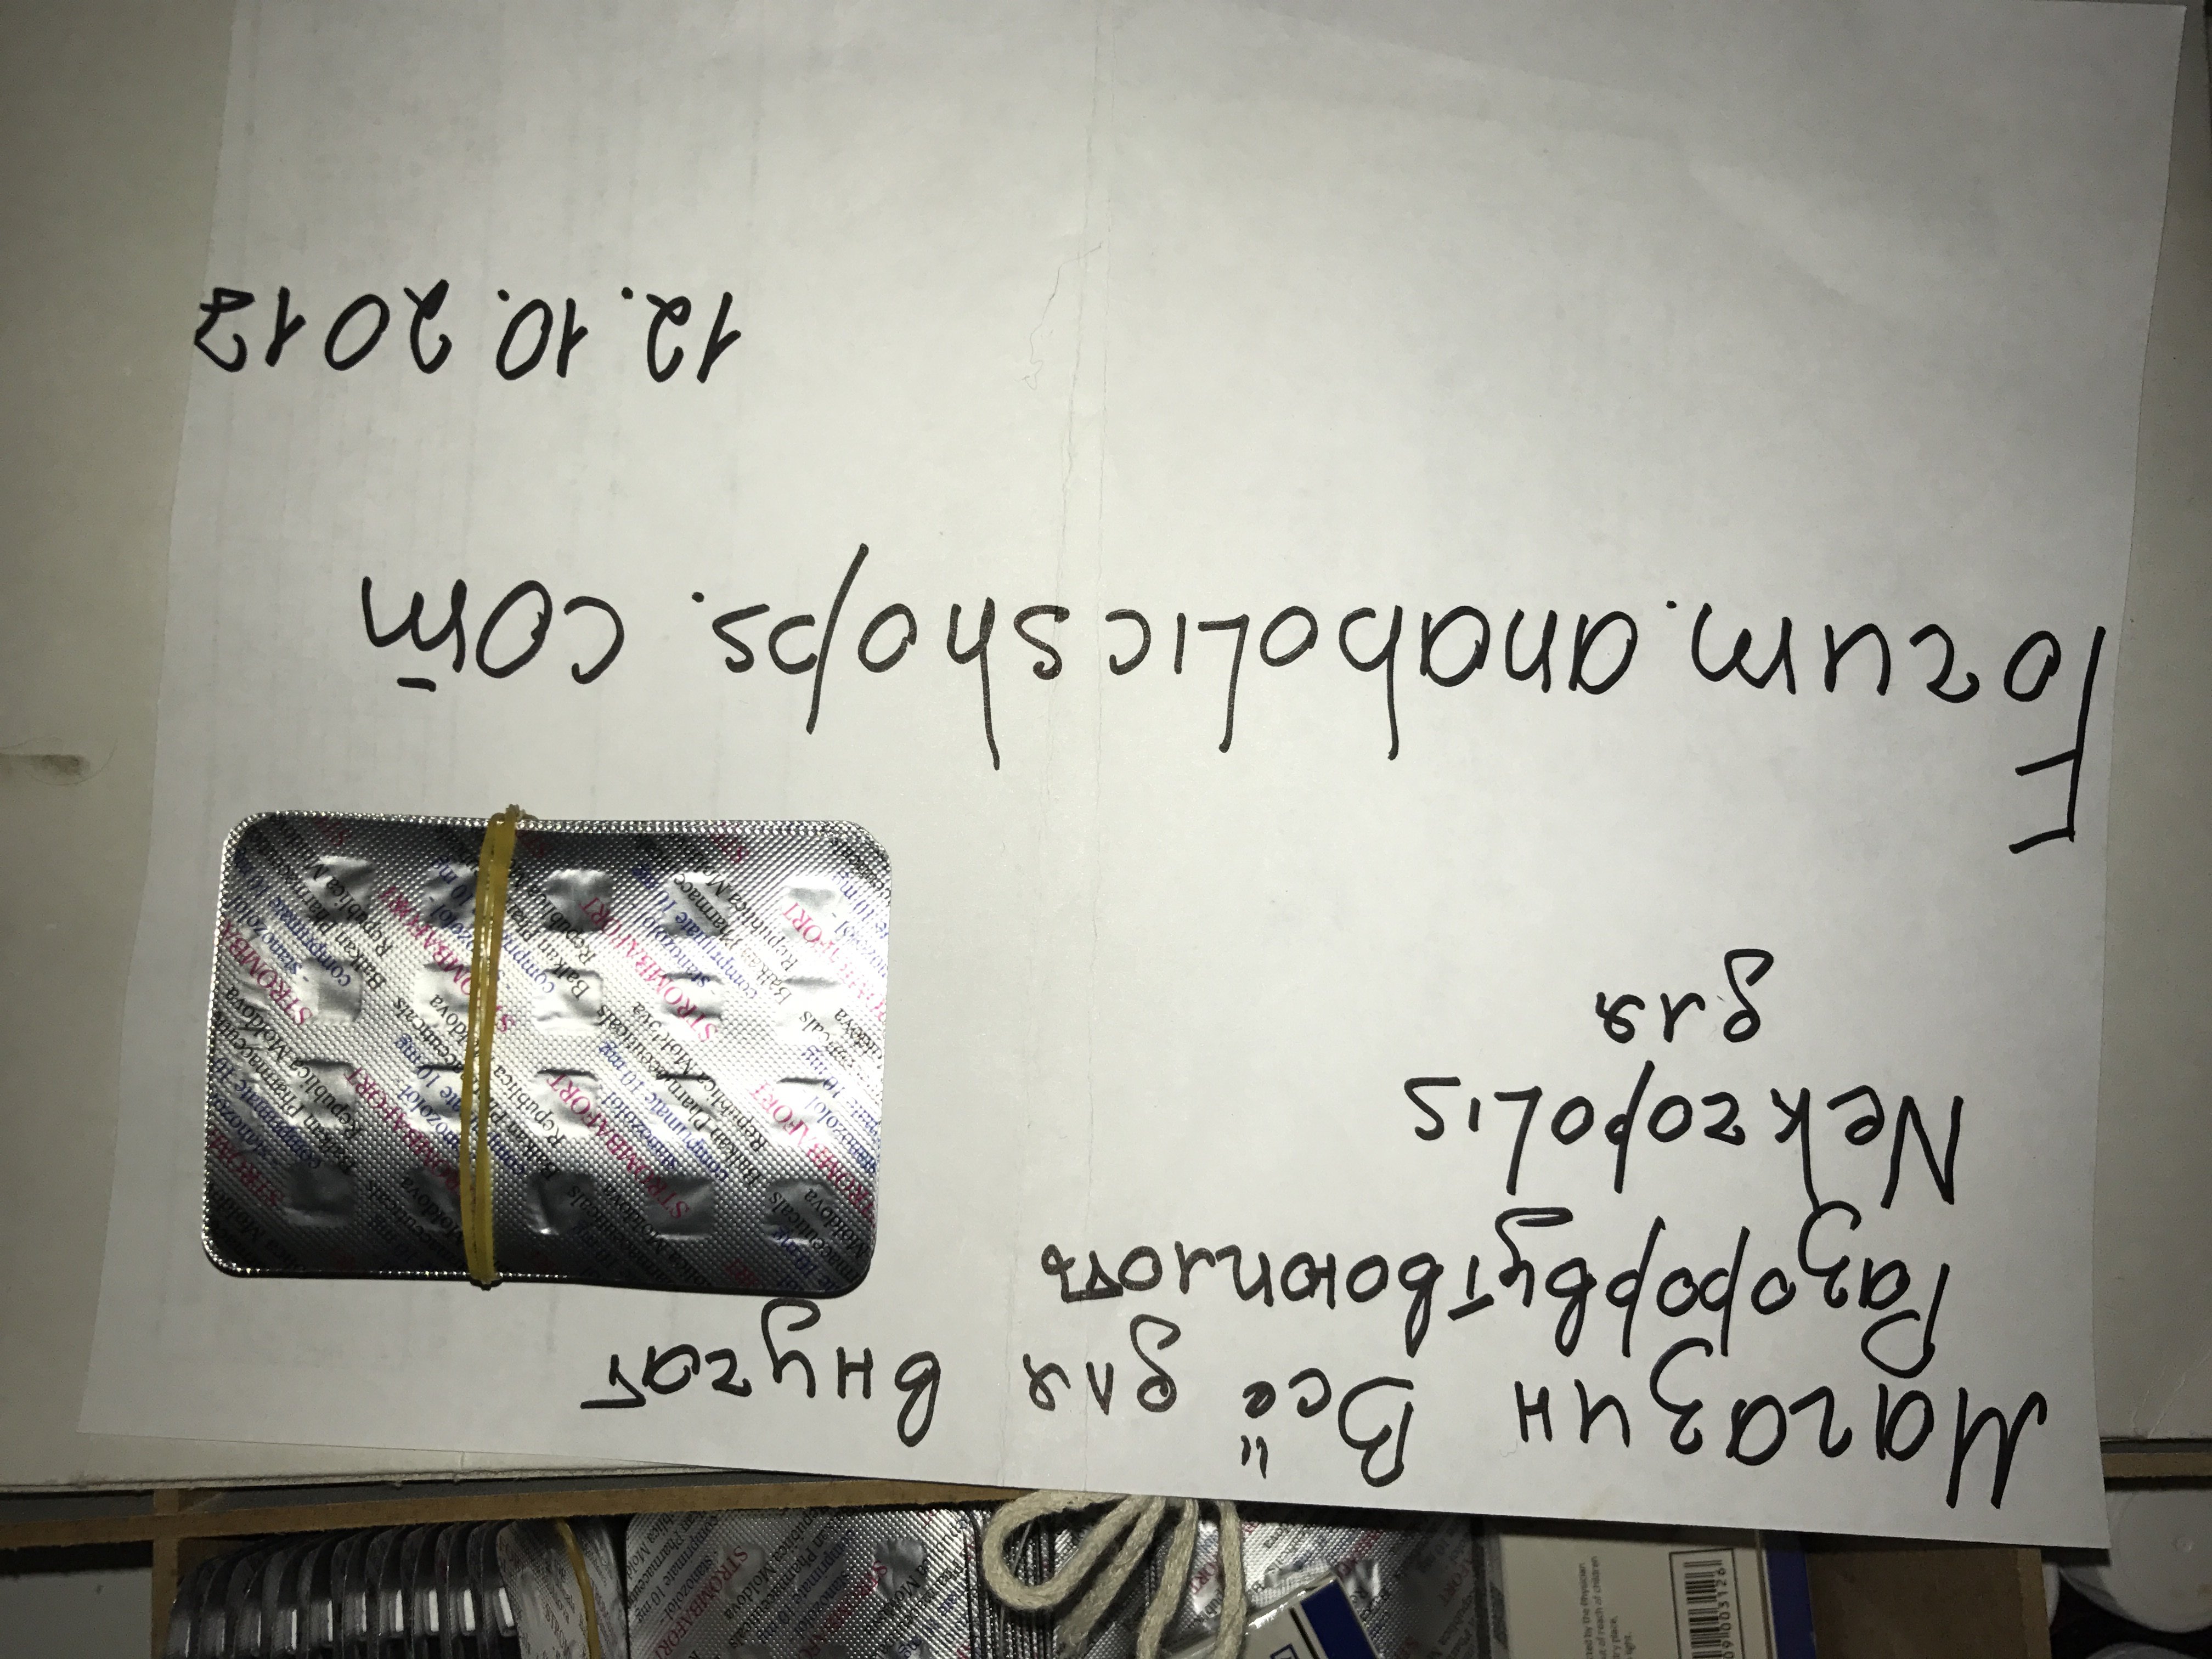 Магазин Всё для внутат
Разорорвутвоюплоть
Nekropolis
для
Forum.anabolicshops.com
12.10.2017
STROMBAFORT
stanozolol -
comprimate 10 mg
Balkan Pharmaceuticals
Republica Moldova